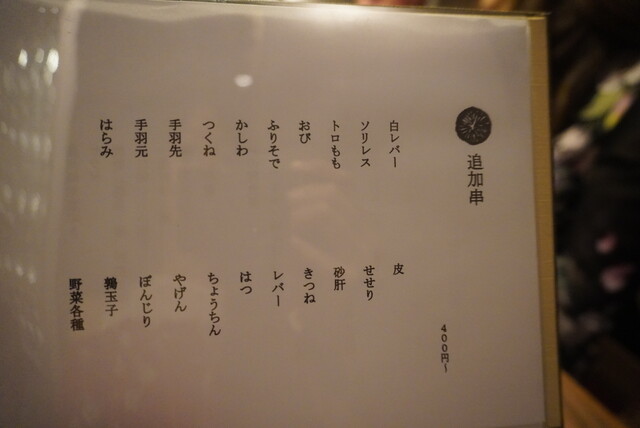 追加串
400円～
白レバー
ソリレス
トロもも
おび
ふりそで
かしわ
つくね
手羽先
手羽元
はらみ
皮
せせり
砂肝
きつね
レバー
はつ
ちょうちん
やげん
ぼんじり
鶉玉子
野菜各種